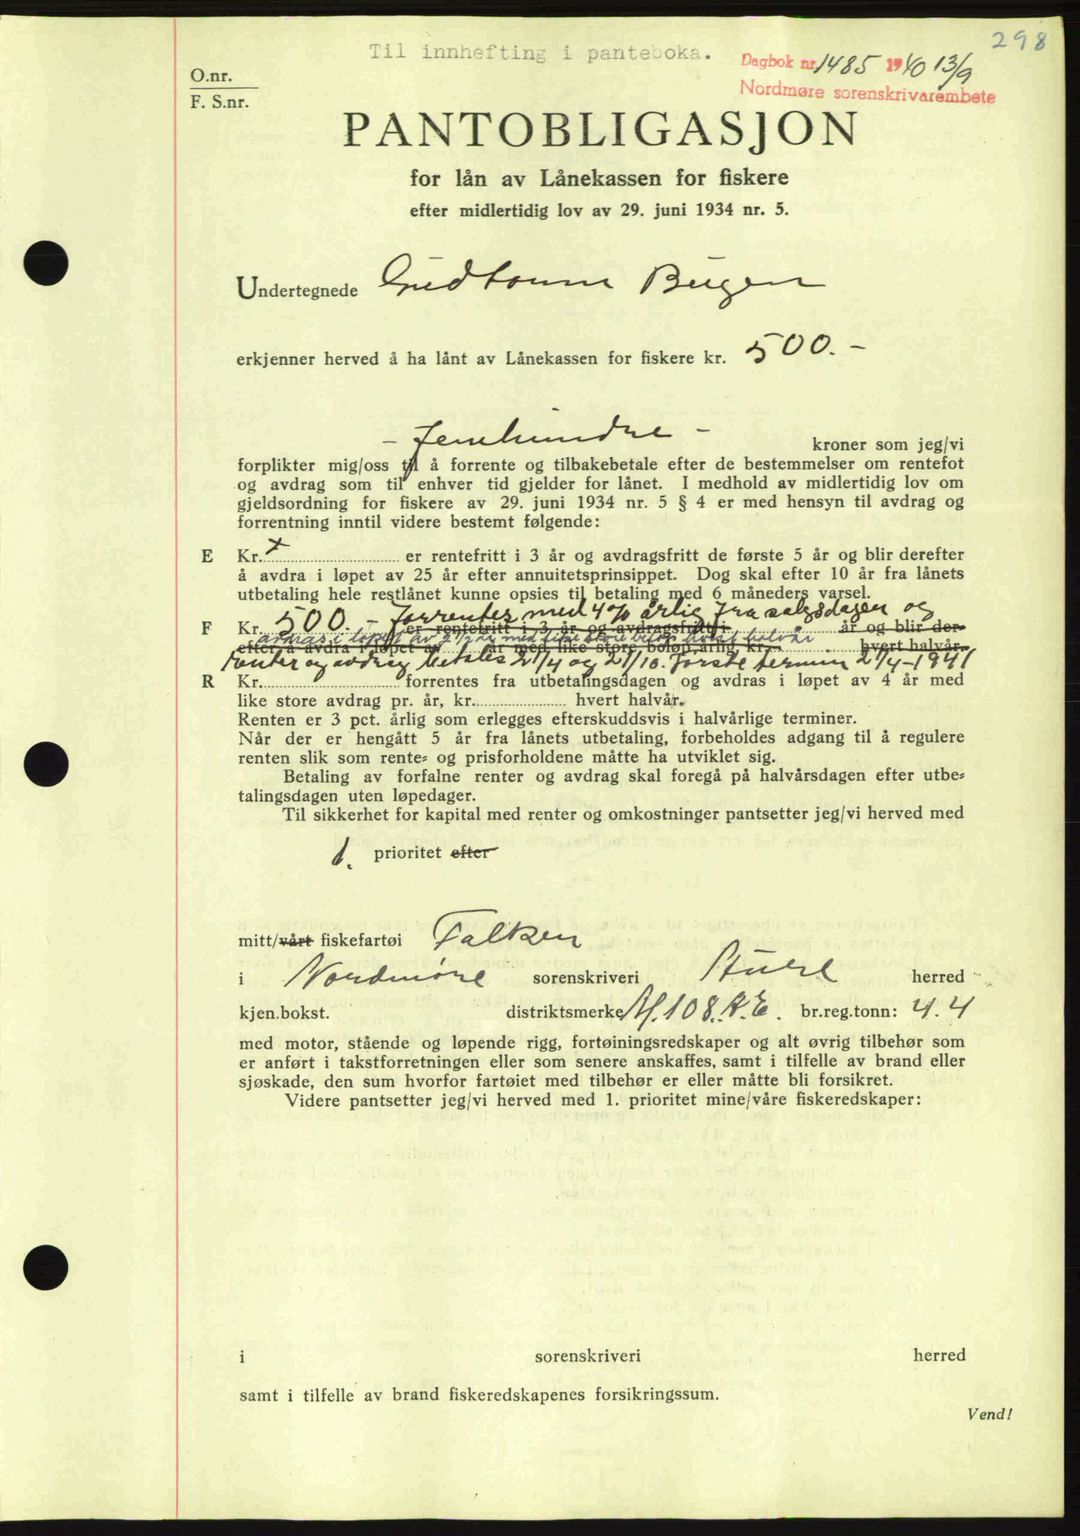 298
Til innhefting i panteboka.
Dagbok nr. 1485 1940 13/9
Nordmøre sorenskrivarembete
O.nr.
F. S.nr.
PANTOBLIGASJON
for lån av Lånekassen for fiskere
efter midlertidig lov av 29. juni 1934 nr. 5.
Undertegnede Gudtorm Bugen
erkjenner herved å ha lånt av Lånekassen for fiskere kr. 500.-
- Femhundre - kroner som jeg/vi
forplikter mig/oss til å forrente og tilbakebetale efter de bestemmelser om rentefot
og avdrag som til enhver tid gjelder for lånet. I medhold av midlertidig lov om
gjeldsordning for fiskere av 29. juni 1934 nr. 5 § 4 er med hensyn til avdrag og
forrentning inntil videre bestemt følgende:
E Kr. x er rentefritt i 3 år og avdragsfritt de første 5 år og blir derefter
å avdra i løpet av 25 år efter annuitetsprinsippet. Dog skal efter 10 år fra lånets
utbetaling hele restlånet kunne opsies til betaling med 6 måneders varsel.
500.- forrentes med 4% årlig fra salgsdagen og
F Kr. er rentefritt i 3 år og avdragsfritt i år og blir der-
avdras i løpet av 2 1/2 år med like store beløp hvert halvår
efter å avdra i løpet av år med like store beløp årlig, kr. hvert halvår.
renter og avdrag betales 21/4 og 21/10. Første termin 21/4-1941
R Kr. forrentes fra utbetalingsdagen og avdras i løpet av 4 år med
like store avdrag pr. år, kr. hvert halvår.
Renten er 3 pct. årlig som erlegges efterskuddsvis i halvårlige terminer.
Når der er hengått 5 år fra lånets utbetaling, forbeholdes adgang til å regulere
renten slik som rente- og prisforholdene måtte ha utviklet sig.
Betaling av forfalne renter og avdrag skal foregå på halvårsdagen efter utbe-
talingsdagen uten løpedager.
Til sikkerhet for kapital med renter og omkostninger pantsetter jeg/vi herved med
1. prioritet efter
mitt/vårt fiskefartøi Falken
i Nordmøre sorenskriveri Sture herred
kjen.bokst. distriktsmerke M.108.K.E. br.reg.tonn: 4.4
med motor, stående og løpende rigg, fortøiningsredskaper og alt øvrig tilbehør som
er anført i takstforretningen eller som senere anskaffes, samt i tilfelle av brand eller
sjøskade, den sum hvorfor fartøiet med tilbehør er eller måtte bli forsikret.
Videre pantsetter jeg/vi herved med 1. prioritet mine/våre fiskeredskaper:
i sorenskriveri herred
samt i tilfelle av brand fiskeredskapenes forsikringssum.
Vend!